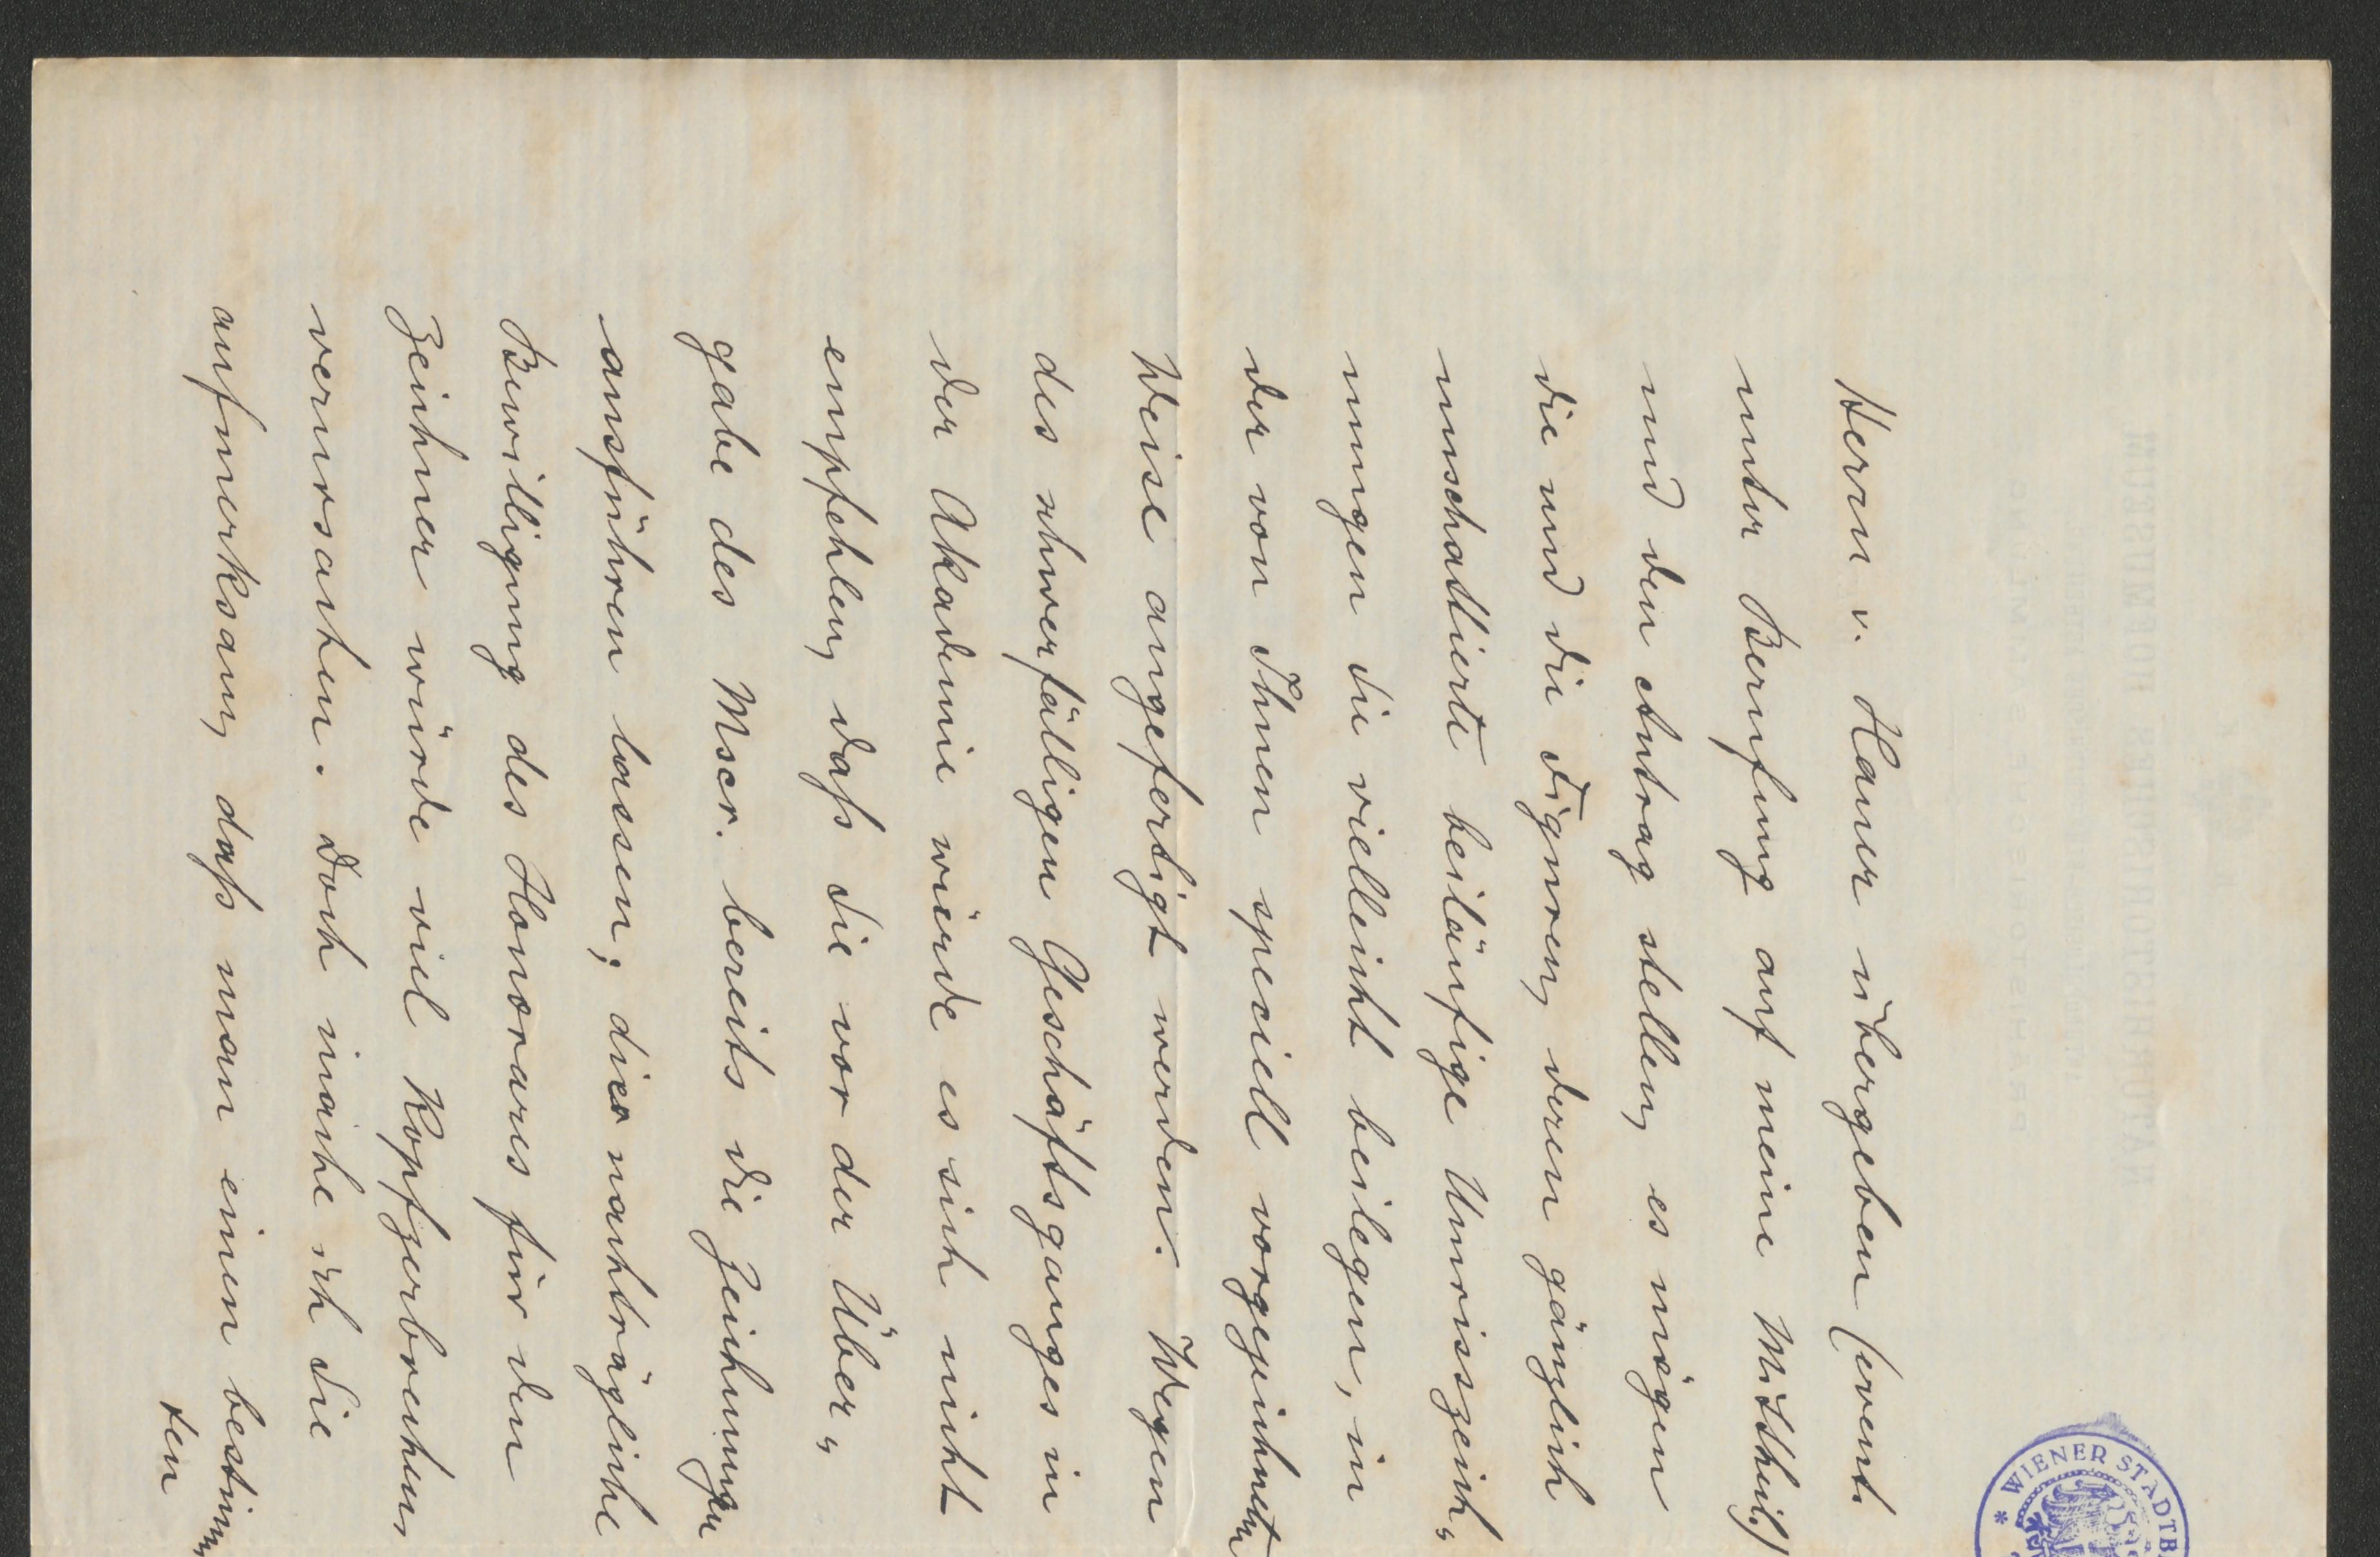 Herrn v. Hauer übergeben (event.
unter Berufung auf meine Mittheil.)
und den Antrag stellen, es mögen
die und die Figuren, deren gänzlich
unschattierte beiläufige Umrisszeich„
nungen Sie vielleicht beilegen, in
der von Ihnen speciell vorgezeichneten
Weise angefertigt werden. Wegen
des schwerfälligen Geschäftsganges in
der Akademie würde es sich nicht
empfehlen, daß Sie vor der Über„
gabe des Mscr. bereits die Zeichnungen
ausführen lassen; die nachträgliche
Bewilligung des Honorares für den
Zeichner würde viel Kopfzerbrechen
verursachen. Doch mache ich Sie
aufmerksam, daß man einen bestimm„
ten
* WIENER STADTB